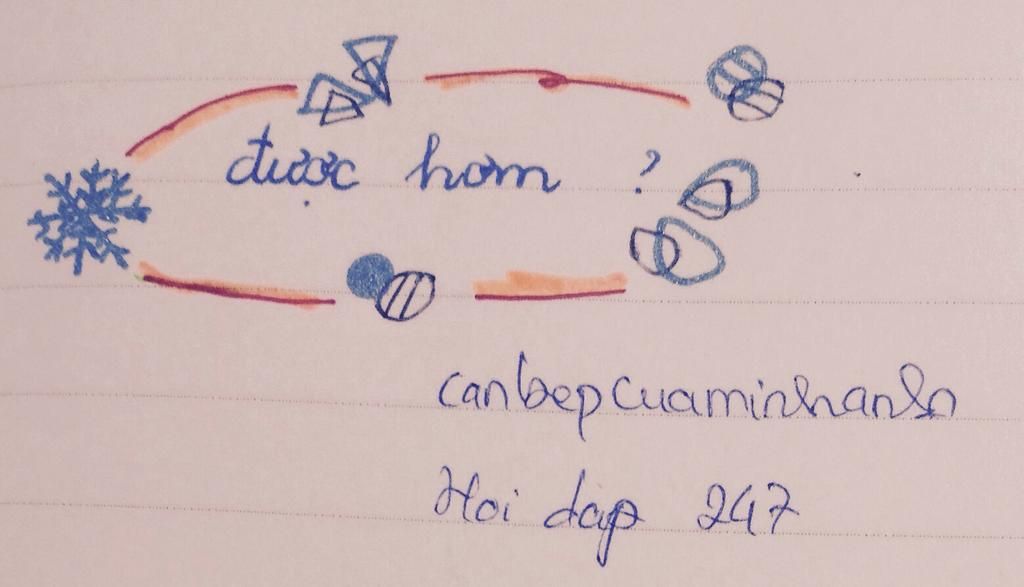 được hom ?
canbepcuaminhanh
Hoi dap 247